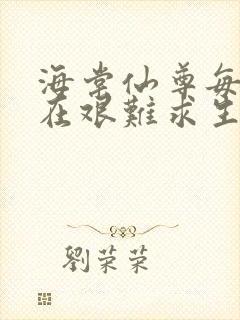 海棠仙尊每
在艱難求生
劉荣荣